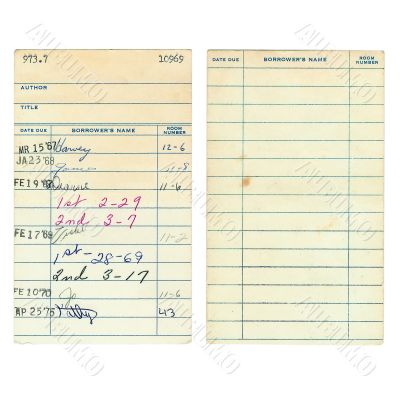 973.7 10969
AUTHOR
TITLE
DATE DUE BORROWER'S NAME ROOM NUMBER
MR 15 '67 Harvey 12-6
JA 23 '68
FE 19 '68 11-6
1st 2-29
2nd 3-7
FE 17 '69 11-2
1st-28-69
2nd 3-17
FE 10 '70 11-6
AP 25 '75 Kathy 43
DATE DUE BORROWER'S NAME ROOM NUMBER